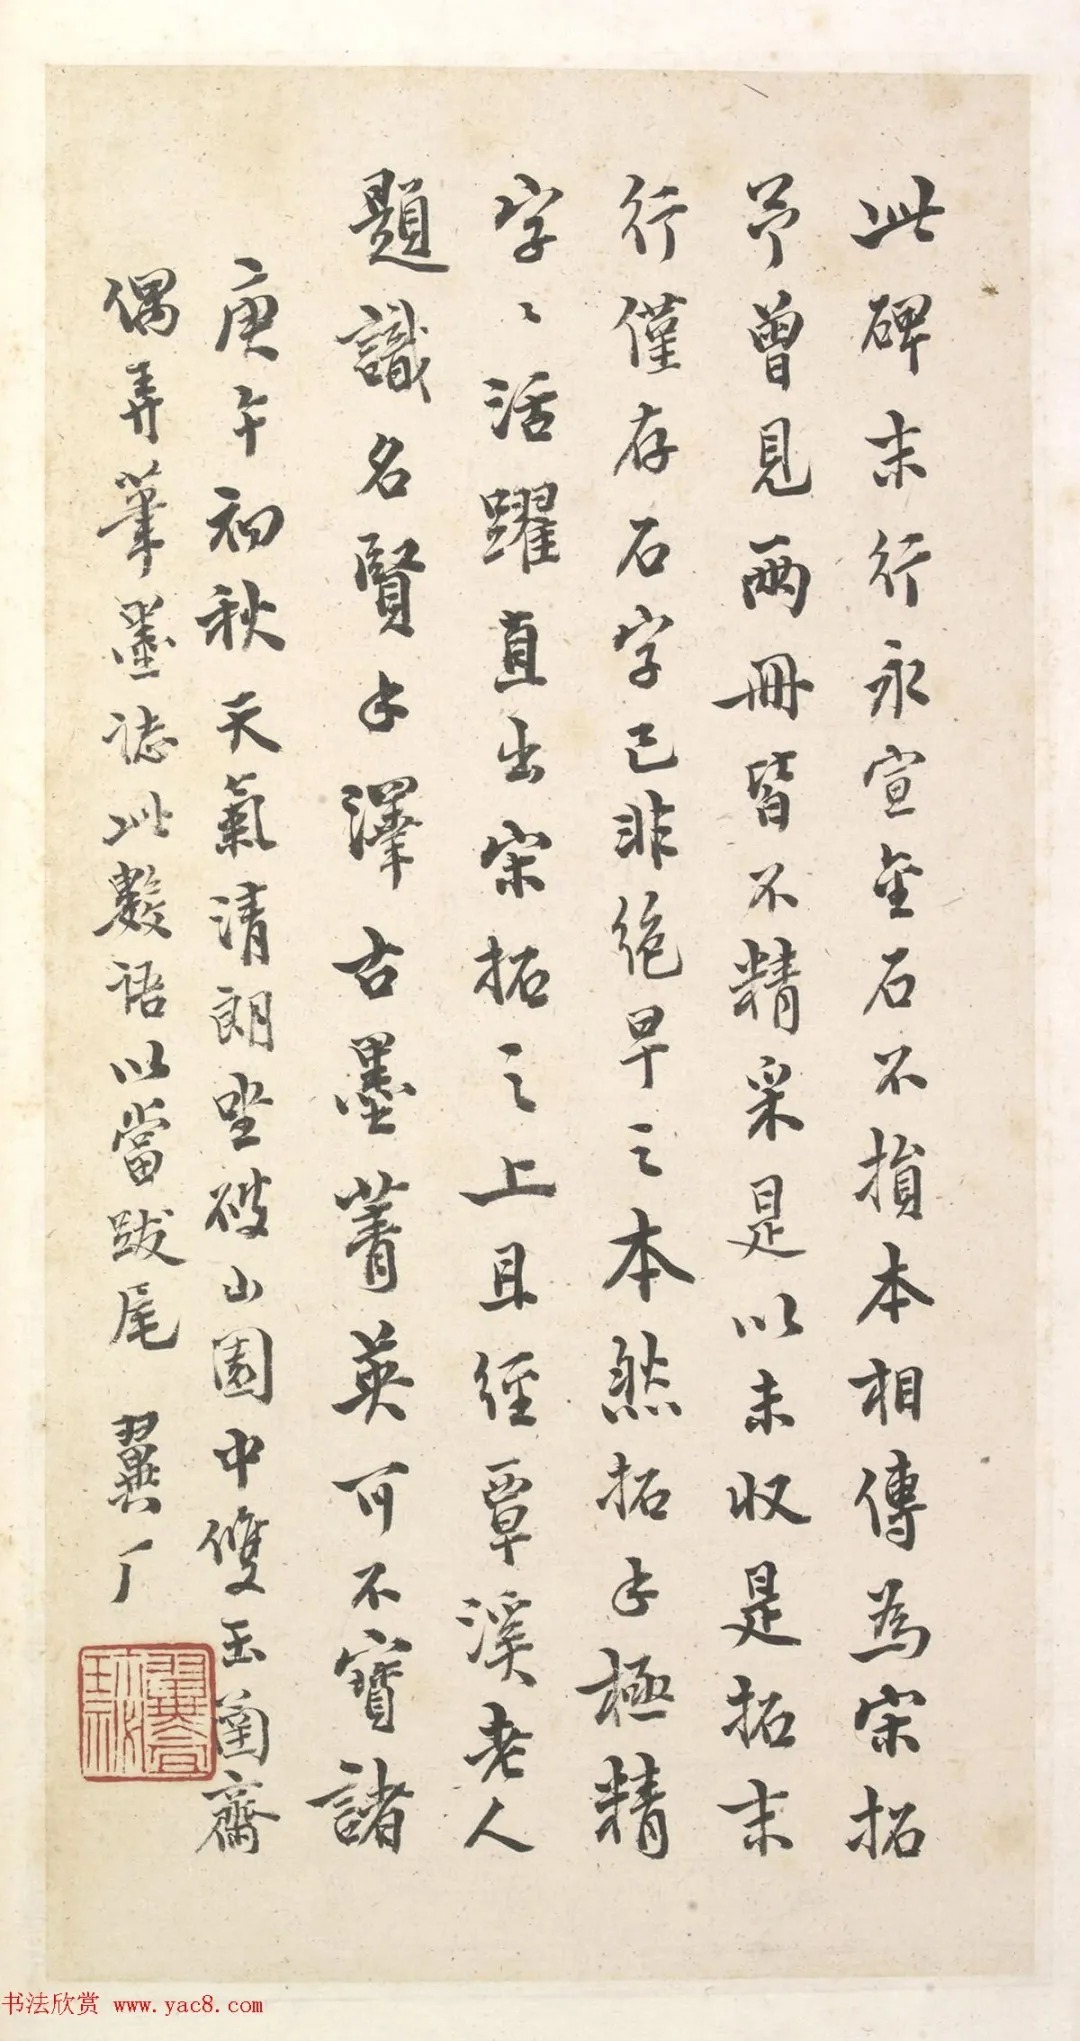 此碑末行永宣金石不損本相傳為宋拓
予曾見兩冊皆不精采是以未收是拓末
行僅存石字已非絶早之本然拓手極精
字〻活躍直出宋拓之上且經覃溪老人
題識名賢手澤古墨菁英可不寶諸
庚午初秋天氣清朗坐破山園中雙玉蘭齋
偶弄筆墨誌此數語以當跋尾 翼厂
书法欣赏 www.yac8.com